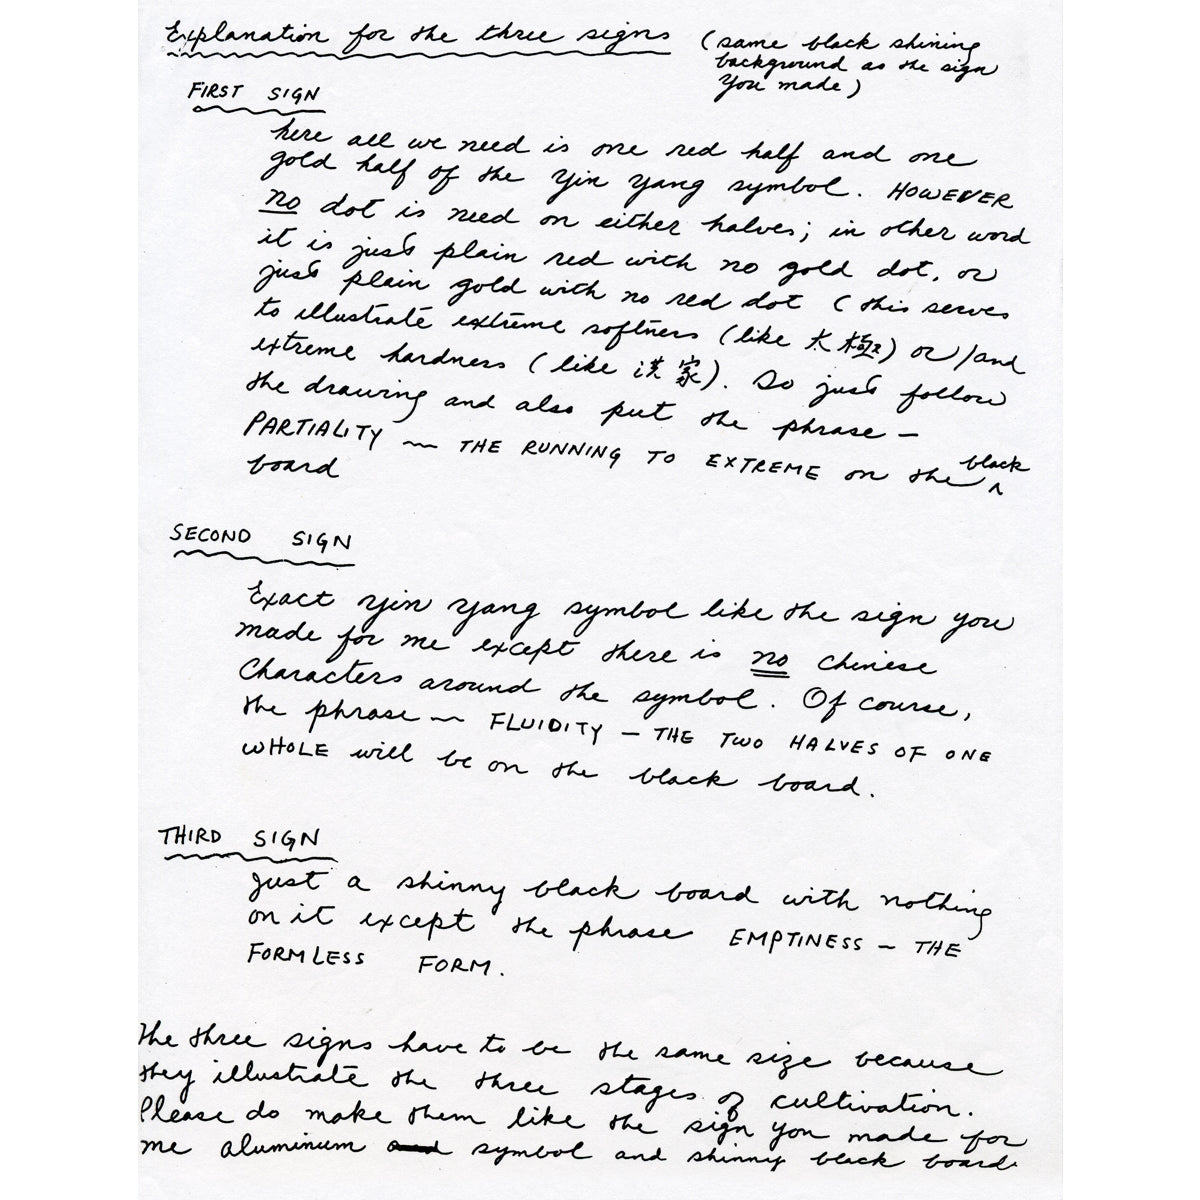 Explanation for the three signs (same black shining
background as the sign
you made)
FIRST SIGN
here all we need is one red half and one
gold half of the Yin Yang symbol. HOWEVER
no dot is need on either halves; in other word
it is just plain red with no gold dot, or
just plain gold with no red dot (this serves
to illustrate extreme softness (like 太極) or/and
extreme hardness (like 洪家). So just follow
the drawing and also put the phrase —
PARTIALITY — THE RUNNING TO EXTREME on the black
board
SECOND SIGN
Exact Yin Yang symbol like the sign you
made for me except there is no Chinese
Characters around the symbol. Of course,
the phrase — FLUIDITY — THE TWO HALVES OF ONE
WHOLE will be on the black board.
THIRD SIGN
Just a shinny black board with nothing
on it except the phrase EMPTINESS — THE
FORMLESS FORM.
The three signs have to be the same size because
they illustrate the three stages of cultivation.
Please do make them like the sign you made for
me aluminum symbol and shinny black board.